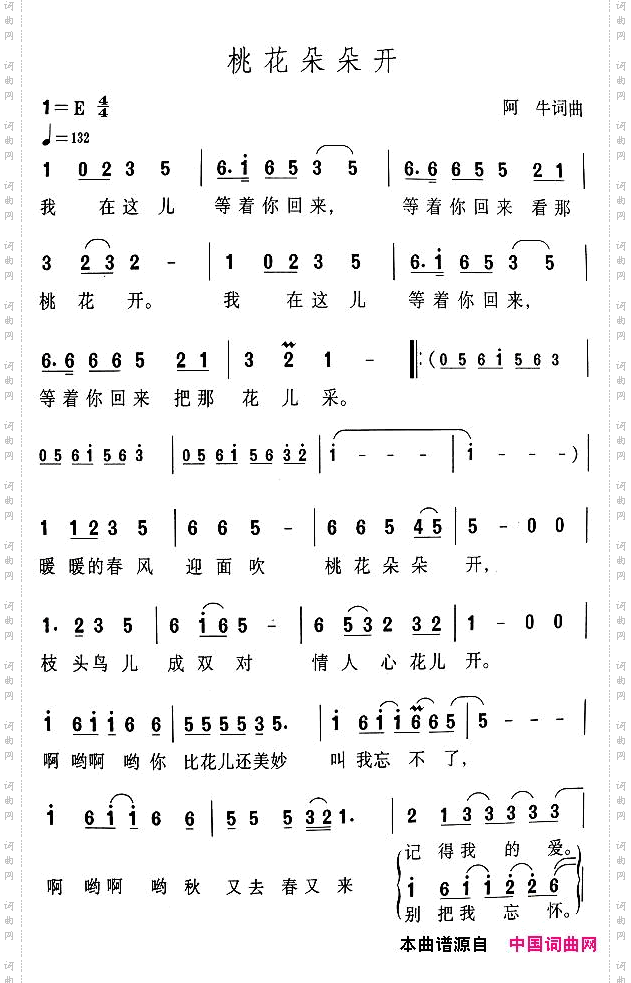 桃花朵朵开
1=E 4/4 阿 牛词曲
♩=132
1 0 2 3 5 | 6. i 6 5 3 5 | 6. 6 6 5 5 2 1 |
我 在这儿 等着你回来, 等着你回来 看那
3 2 3 2 - | 1 0 2 3 5 | 6. i 6 5 3 5 |
桃 花 开。 我 在这儿 等着你回来,
6. 6 6 6 5 5 2 1 | 3 2 1 - ‖: ( 0 5 6 i 5 6 3 |
等着你回来 把那 花 儿 采。
0 5 6 i 5 6 3 | 0 5 6 i 5 6 3 2 | i - - - | i - - ) |
1 1 2 3 5 | 6 6 5 - | 6 6 5 4 5 | 5 - 0 0 |
暖 暖的春 风 迎 面 吹 桃 花 朵朵 开,
1. 2 3 5 | 6 i 6 5 - | 6 5 3 2 3 2 | 1 - 0 0 |
枝 头鸟 儿 成 双 对 情 人 心 花儿 开。
i 6 i i 6 6 | 5 5 5 5 3 5. | i 6 i i 6 6 5 | 5 - - - |
啊 哟啊 哟你 比花儿还美妙 叫我忘 不 了,
i 6 i i 6 6 | 5 5 5 3 2 1. | 2 1 3 3 3 3 3
记 得我 的 爱。
啊 哟啊 哟秋 又去 春又 来 i 6 i i 2 2 6
别 把我 忘 怀。
本曲谱源自 中国词曲网
词曲网